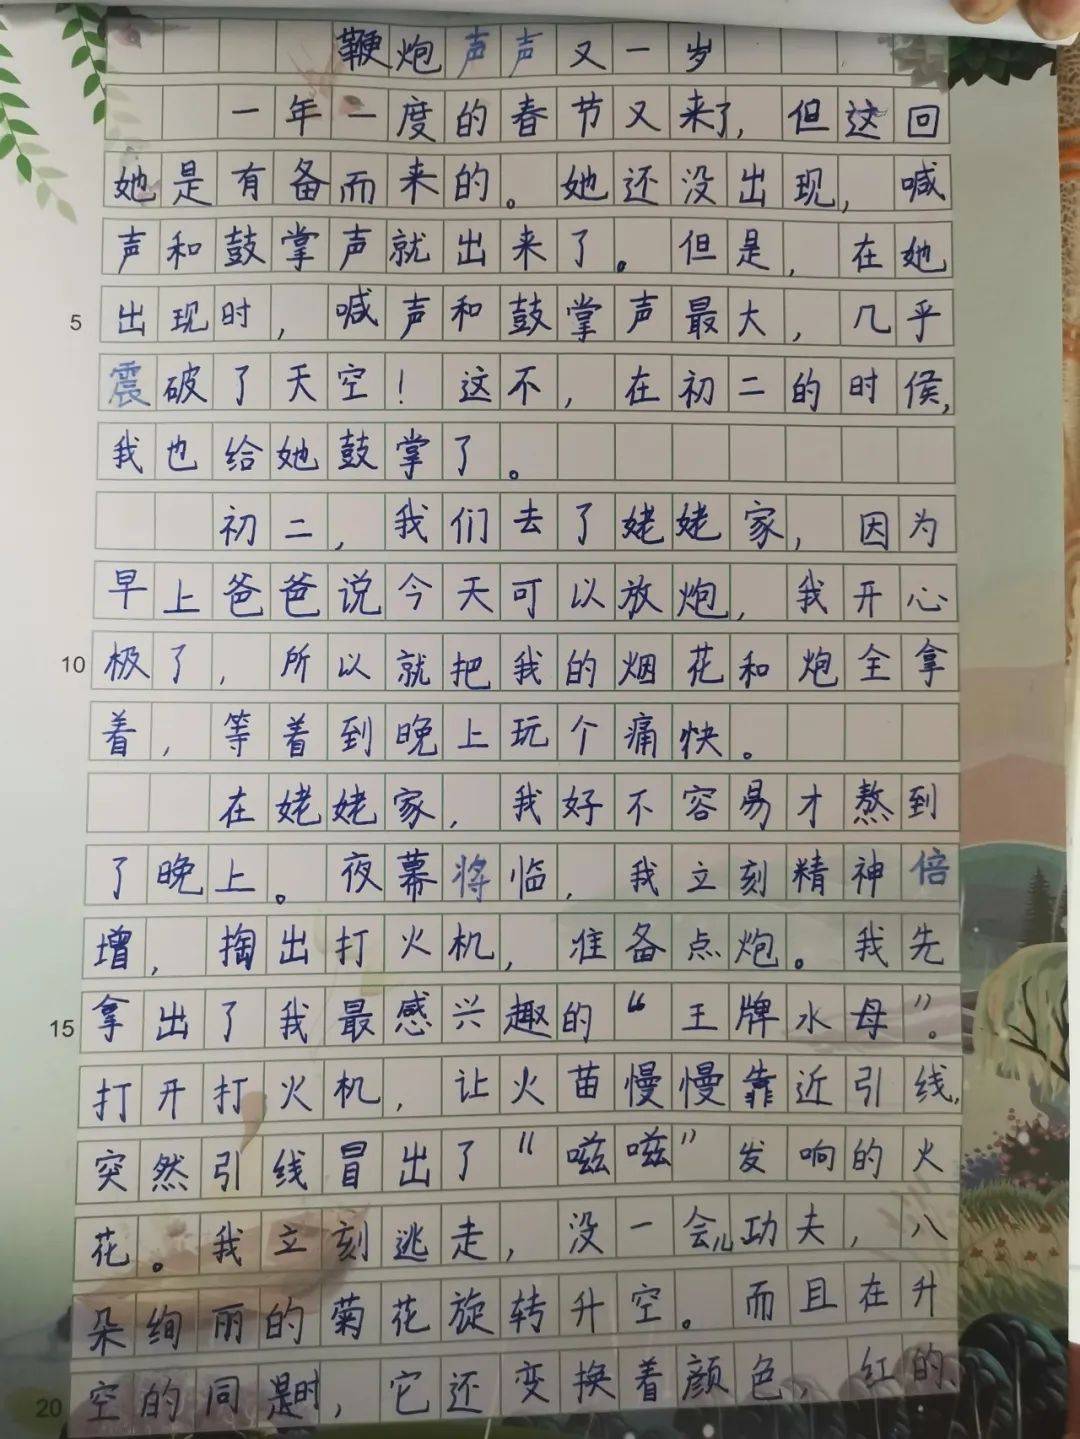 鞭炮声声又一岁
一年一度的春节又来了,但这回
她是有备而来的。她还没出现,喊
声和鼓掌声就出来了。但是,在她
5 出现时,喊声和鼓掌声最大,几乎
震破了天空!这不,在初二的时侯,
我也给她鼓掌了。
初二,我们去了姥姥家,因为
早上爸爸说今天可以放炮,我开心
10 极了,所以就把我的烟花和炮全拿
着,等着到晚上玩个痛快。
在姥姥家,我好不容易才熬到
了晚上。夜幕将临,我立刻精神倍
增,掏出打火机,准备点炮。我先
15 拿出了我最感兴趣的“王牌水母”。
打开打火机,让火苗慢慢靠近引线,
突然引线冒出了“嗞嗞”发响的火
花。我立刻逃走,没一会儿功夫,八
朵绚丽的菊花旋转升空。而且在升
20 空的同是时,它还变换着颜色,红的、